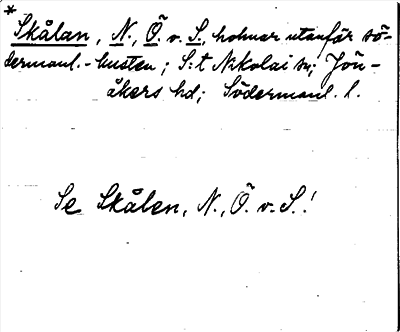 *
Skålan, N., Ö. v. S., holmar utanför sö-
dermanl.-kusten; S:t Nikolai sn; Jön-
åkers hd; Södermanl. l.
Se Skålen, N., Ö. v. S.!